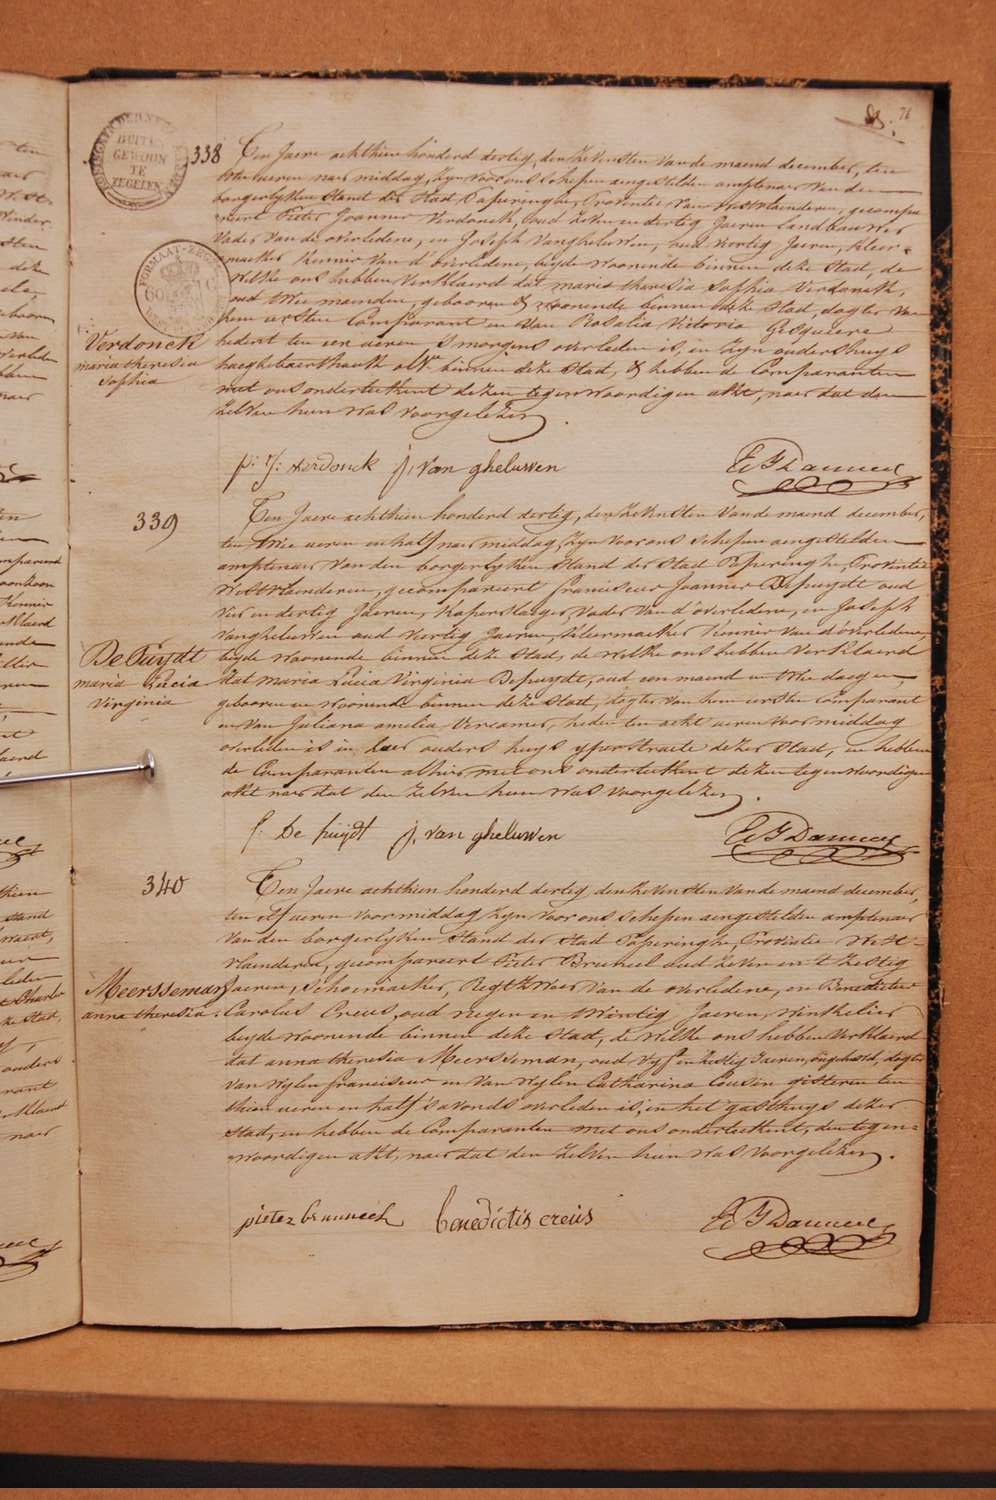 71
BUITEN
GEWOON
TE
ZEGELEN
FORMAAT-ZEGEL
338
Verdonck
maria theresia
Sophia
Ten Jaere achthien honderd dertig, den zevensten van de maend december, ten
drie ueren naer middag, zyn voor ons schepen aengestelden amptenaer van den
borgerlyken Stand der Stad Poperinghe, Provintie van Westvlaenderen, gecompa-
reert Pieter Joannes Verdonck, oud zeven en dertig Jaeren Landbouwer
Vader van de overledene, en Joseph Vangheluwen, oud veertig Jaeren, kleer-
maeker Kennis van d'overledene, beyde woonende binnen deze Stad, de
Welke ons hebben Verklaerd dat maria theresia Sophia Verdonck,
oud twee maenden, gebooren & woonende binnen deze Stad, dogter van
den eersten Comparant en van Rosalia Victoria Gesquiere
hedent ten een ueren Smorgens overleden is, in zyn ouders huys
binnen deze Stad, & hebben de Comparanten
met ons onderteekent dezen tegenwoordigen akt, naer dat den
zelven hun was voorgelezen
p: j: verdonck j, van gheluwen
339
De Puydt
maria Lucia
Virginia
Ten Jaere achthien honderd dertig, den zevensten van de maend december,
ten twee ueren en half naer middag, zyn voor ons schepen aengestelden
amptenaer van den borgerlyken Stand der Stad Poperinghe, Provintie
Westvlaenderen, gecompareert franciscus Joannes Depuydt oud
vier en dertig Jaeren, Kaperslaeger, Vader van d'overledene, en Joseph
Vangheluwen oud veertig Jaeren, kleermaeker Kennis van d'overledene,
beyde woonende binnen deze Stad, de welke ons hebben Verklaerd
dat maria Lucia Virginia Depuydt, oud een maend en twee daegen,
gebooren en woonende binnen deze Stad, dogter van den eersten Comparant
en van Juliana amelia Vercamer, heden ten acht ueren voor middag
overleden is in haer ouders huys yperstraete dezer Stad, en hebben
de Comparanten alhier met ons onderteekent dezen tegenwoordigen
akt naer dat den zelven hun was voorgelezen.
f: De puydt j, van gheluwen
340
Meersseman
anna theresia.
Ten Jaere achthien honderd dertig den zevensten van de maend december,
ten elf ueren voormiddag zyn voor ons schepen aengestelden amptenaer
van den borgerlyken Stand der Stad Poperinghe, Provintie West-
vlaenderen, gecompareert Pieter Bruneel oud zeven en 't zestig
Jaeren, Schoemaeker, Regtzweer van de overledene, en Benedictus
Carolus Creus, oud negen en twintig Jaeren, winkelier
beyde woonende binnen deze Stad, de welke ons hebben Verklaerd
dat anna theresia Meersseman, oud vyf en zestig Jaeren, ongehuwd, dogter
van wylen franciscus en van wylen Catharina Cousin gisteren ten
thien ueren en half s'avonds overleden is, in het gasthuys dezer
Stad, en hebben de Comparanten met ons onderteekent, den tegen-
woordigen akt, naer dat den zelven hun was voorgelezen.
pieter bruneel benedictis creüs